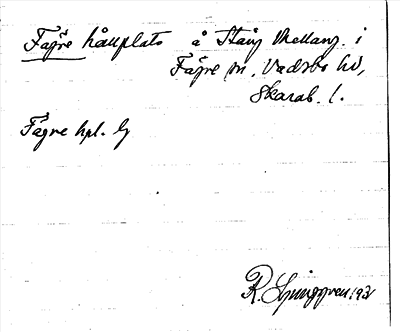 Fägre hållplats å Stäng Mellang. i
Fägre sn. Vadsbo hd,
Skarab. l.
Fägre hpl. Lj
R. Ljunggren 192